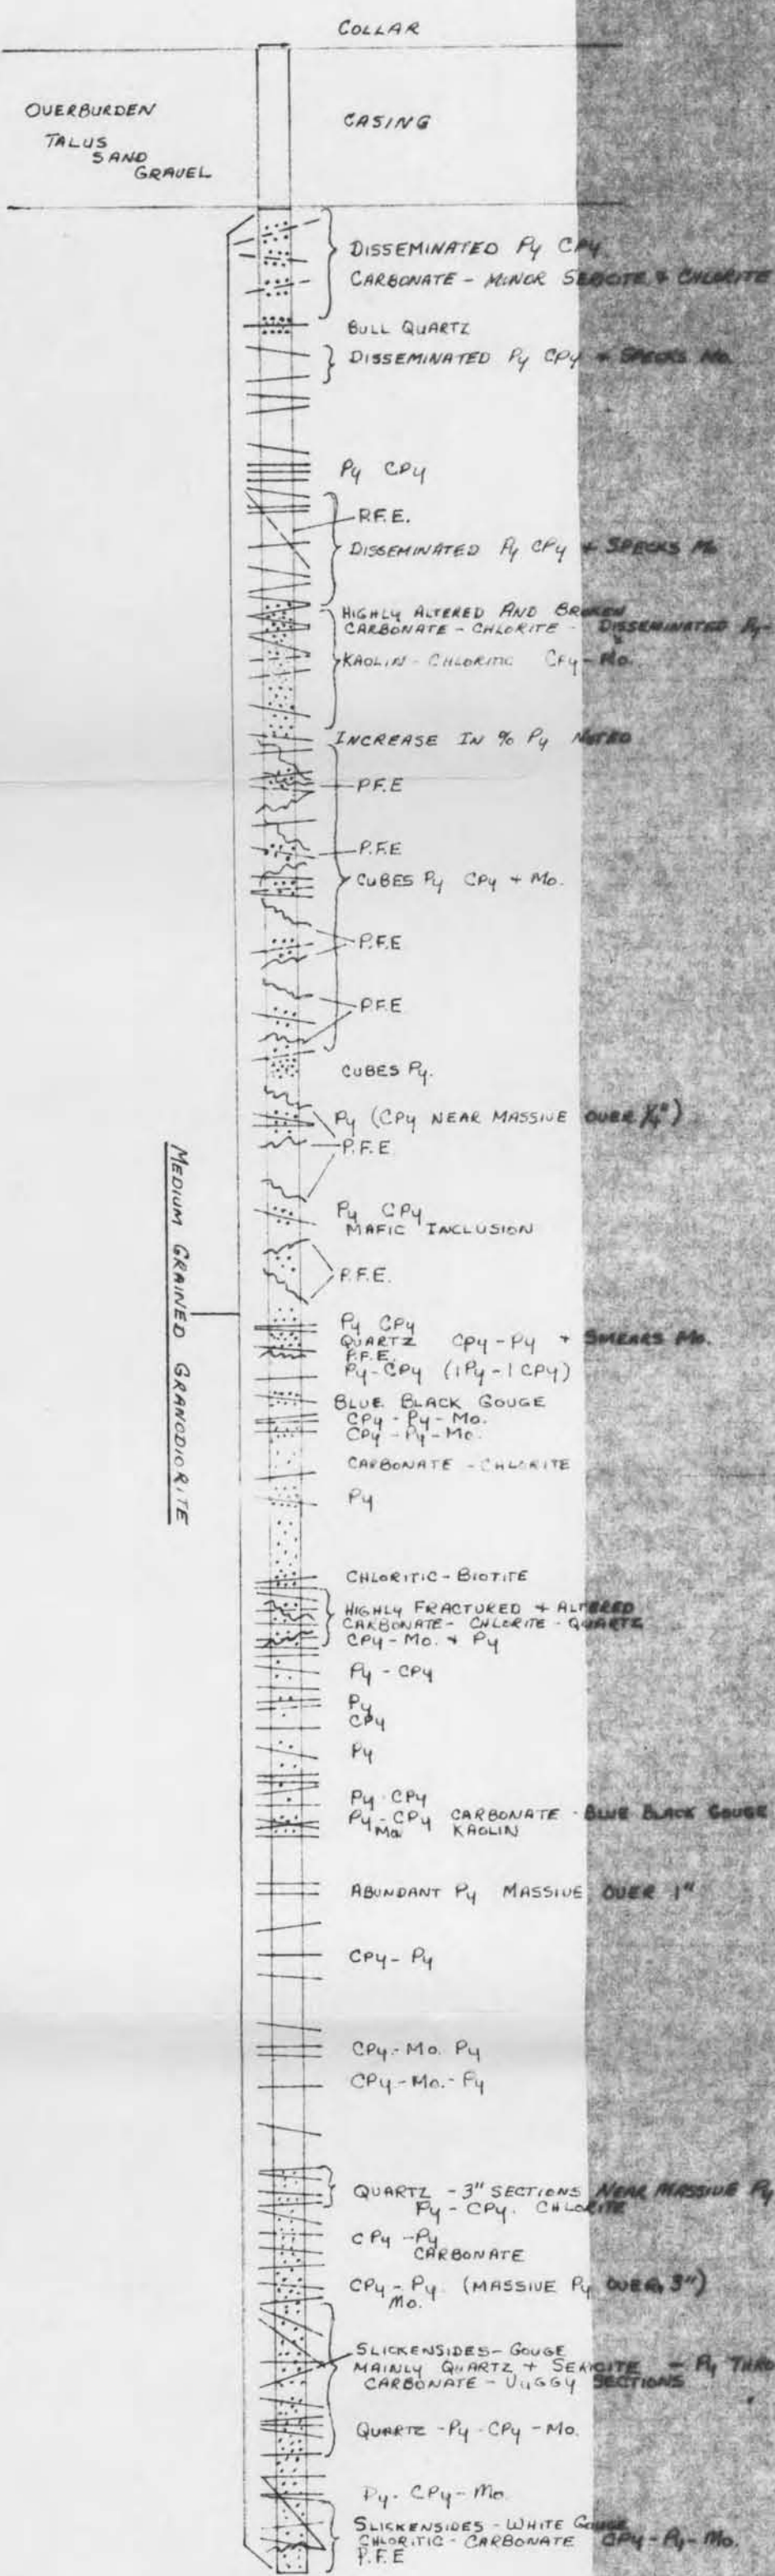 COLLAR
OVERBURDEN
TALUS
SAND
GRAVEL
CASING
DISSEMINATED Py CPy
CARBONATE - MINOR SERICITE & CHLORITE
BULL QUARTZ
DISSEMINATED Py CPy + SPECKS Mo.
Py CPy
P.F.E.
DISSEMINATED Py CPy + SPECKS Mo
HIGHLY ALTERED AND BROKEN
CARBONATE - CHLORITE - DISSEMINATED Py-
KAOLIN - CHLORITIC CPy - Mo.
INCREASE IN % Py NOTED
P.F.E
P.F.E
CUBES Py CPy + Mo.
P.F.E
P.F.E
CUBES Py.
Py (CPy NEAR MASSIVE OVER 1/4")
P.F.E
Py CPy
MAFIC INCLUSION
P.F.E.
MEDIUM GRAINED GRANODIORITE
Py CPy
QUARTZ CPy-Py + SMEARS Mo.
P.F.E.
Py-CPy (1Py-1CPy)
BLUE BLACK GOUGE
CPy-Py-Mo.
CPy-Py-Mo.
CARBONATE - CHLORITE
Py
CHLORITIC-BIOTITE
HIGHLY FRACTURED + ALTERED
CARBONATE - CHLORITE - QUARTZ
CPy-Mo. + Py
Py - CPy
Py
CPy
Py
Py-CPy
Py-CPy CARBONATE - BLUE BLACK GOUGE
Mo KAOLIN
ABUNDANT Py MASSIVE OVER 1"
CPy- Py
CPy-Mo. Py
CPy-Mo.-Py
QUARTZ - 3" SECTIONS NEAR MASSIVE Py
Py-CPy. CHLORITE
CPy-Py
CARBONATE
CPy-Py. (MASSIVE Py OVER 3")
Mo.
SLICKENSIDES-GOUGE
MAINLY QUARTZ + SERICITE - Py THRO
CARBONATE - VUGGY SECTIONS
QUARTZ -Py-CPy-Mo.
Py-CPy-Mo.
SLICKENSIDES - WHITE GOUGE
CHLORITIC - CARBONATE CPy-Py-Mo.
P.F.E